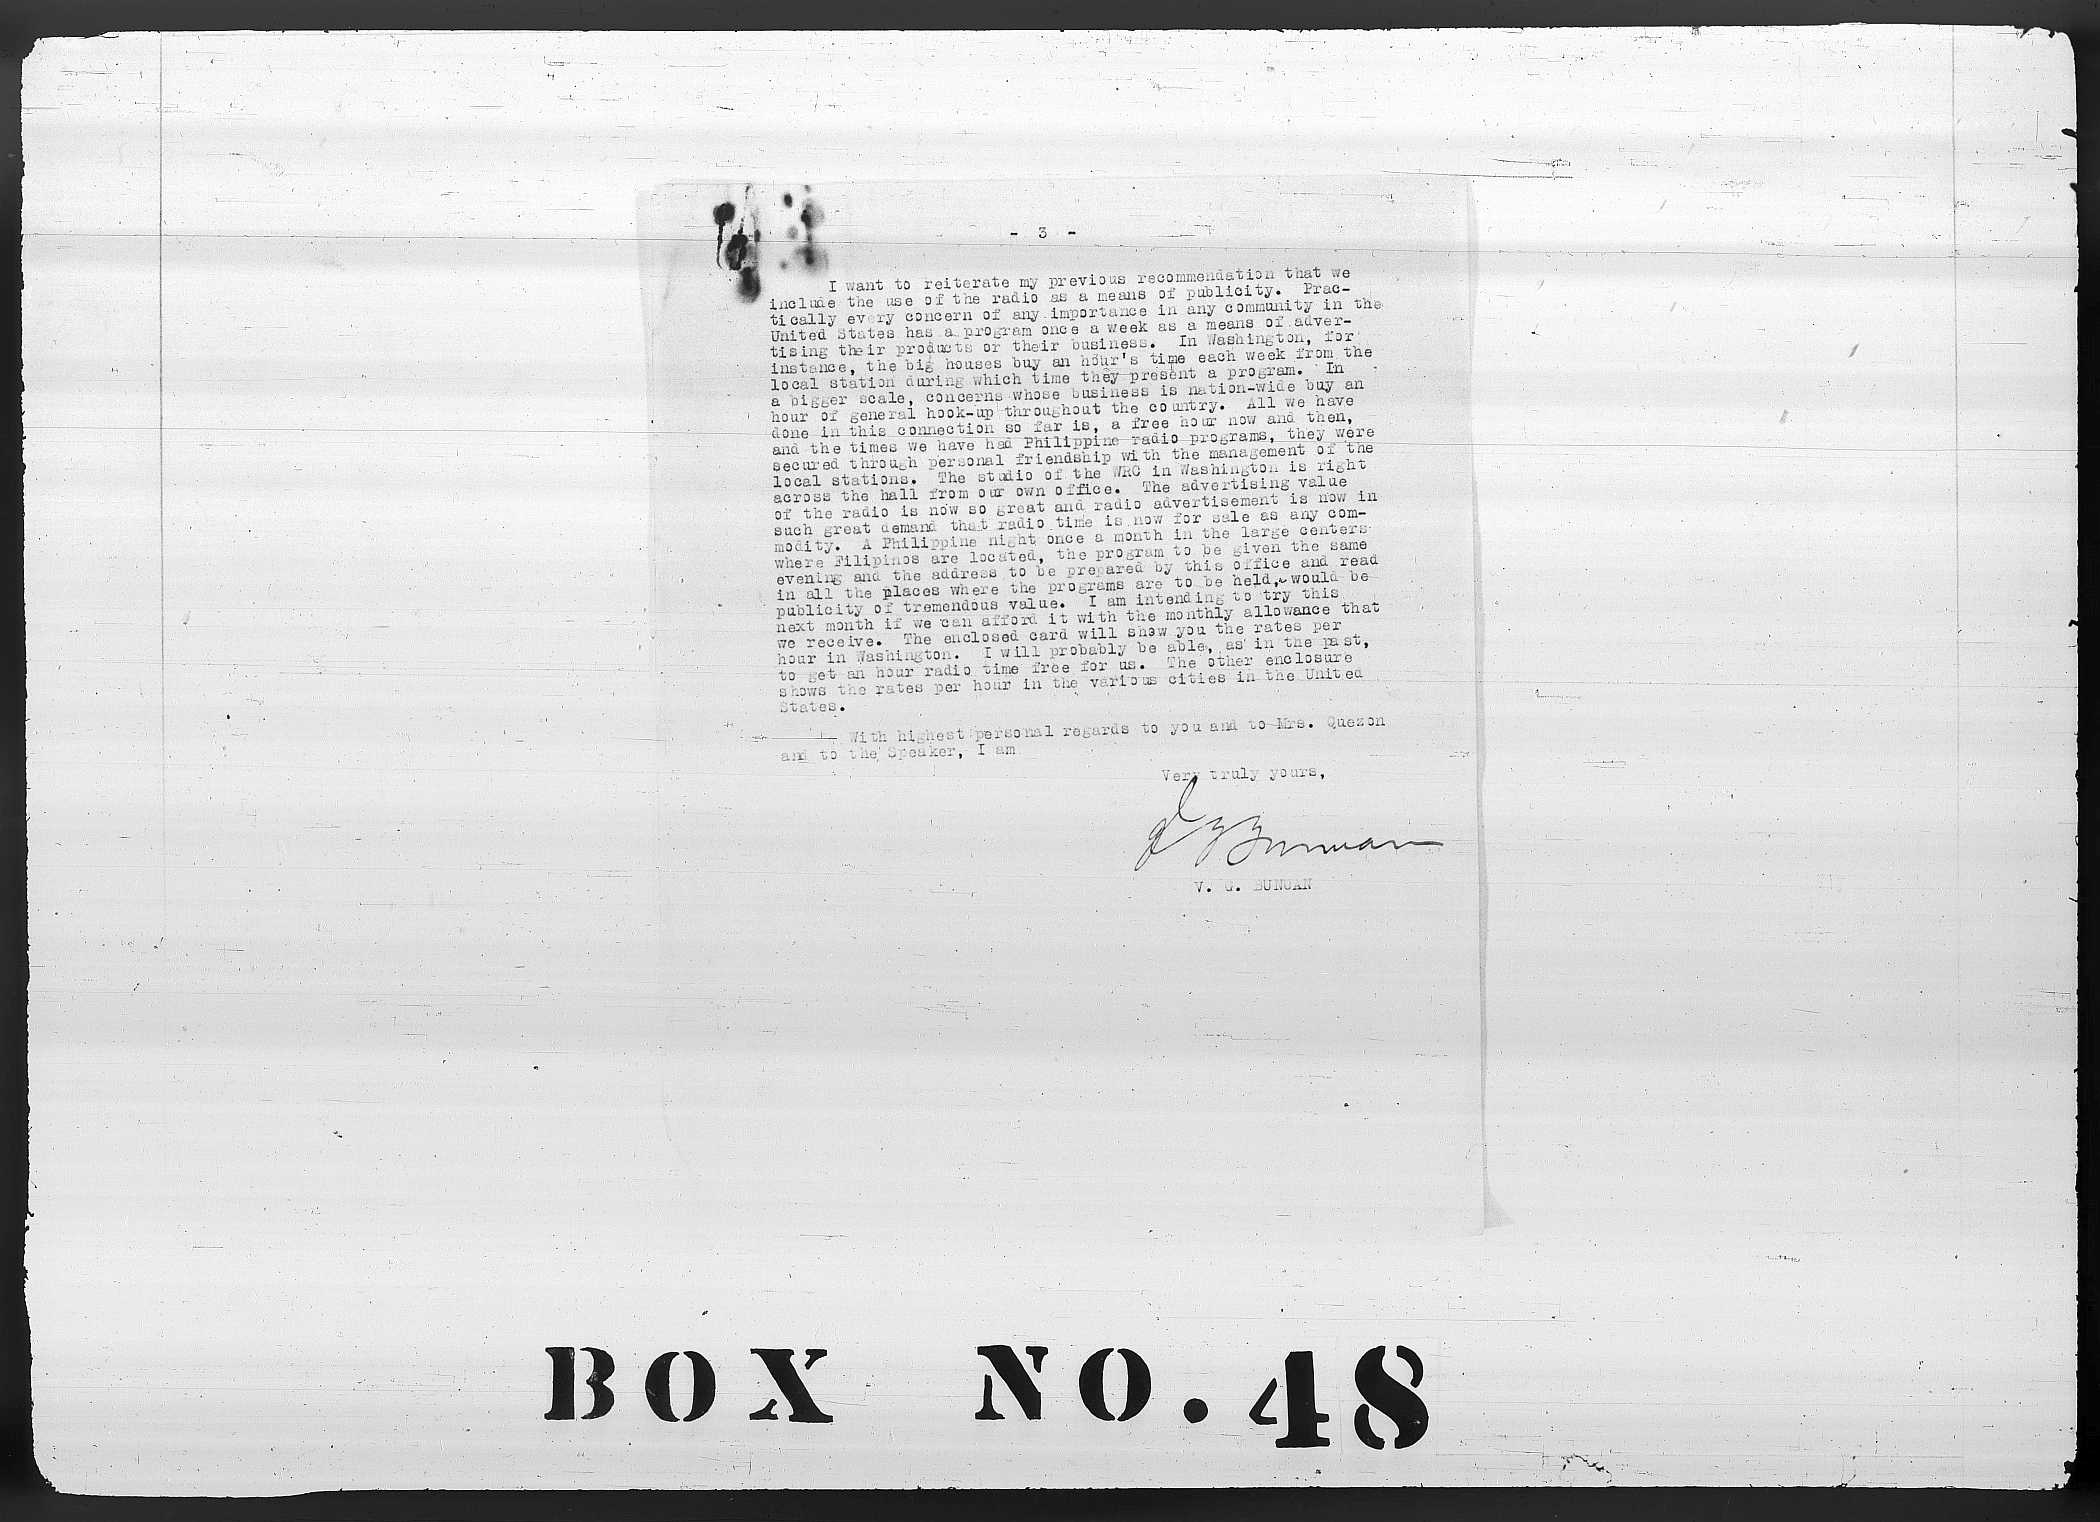 - 3 -
I want to reiterate my previous recommendation that we
include the use of the radio as a means of publicity. Prac-
tically every concern of any importance in any community in the
United States has a program once a week as a means of adver-
tising their products or their business. In Washington, for
instance, the big houses buy an hour's time each week from the
local station during which time they present a program. In
a bigger scale, concerns whose business is nation-wide buy an
hour of general hook-up throughout the country. All we have
done in this connection so far is, a free hour now and then,
and the times we have had Philippine radio programs, they were
secured through personal friendship with the management of the
local stations. The studio of the WRC in Washington is right
across the hall from our own office. The advertising value
of the radio is now so great and radio advertisement is now in
such great demand that radio time is now for sale as any com-
modity. A Philippine night once a month in the large centers
where Filipinos are located, the program to be given the same
evening and the address to be prepared by this office and read
in all the places where the programs are to be held, would be
publicity of tremendous value. I am intending to try this
next month if we can afford it with the monthly allowance that
we receive. The enclosed card will show you the rates per
hour in Washington. I will probably be able, as in the past,
to get an hour radio time free for us. The other enclosure
shows the rates per hour in the various cities in the United
States.
With highest personal regards to you and to Mrs. Quezon
and to the Speaker, I am
Very truly yours,
V. G. BUNUAN
BOX NO. 48